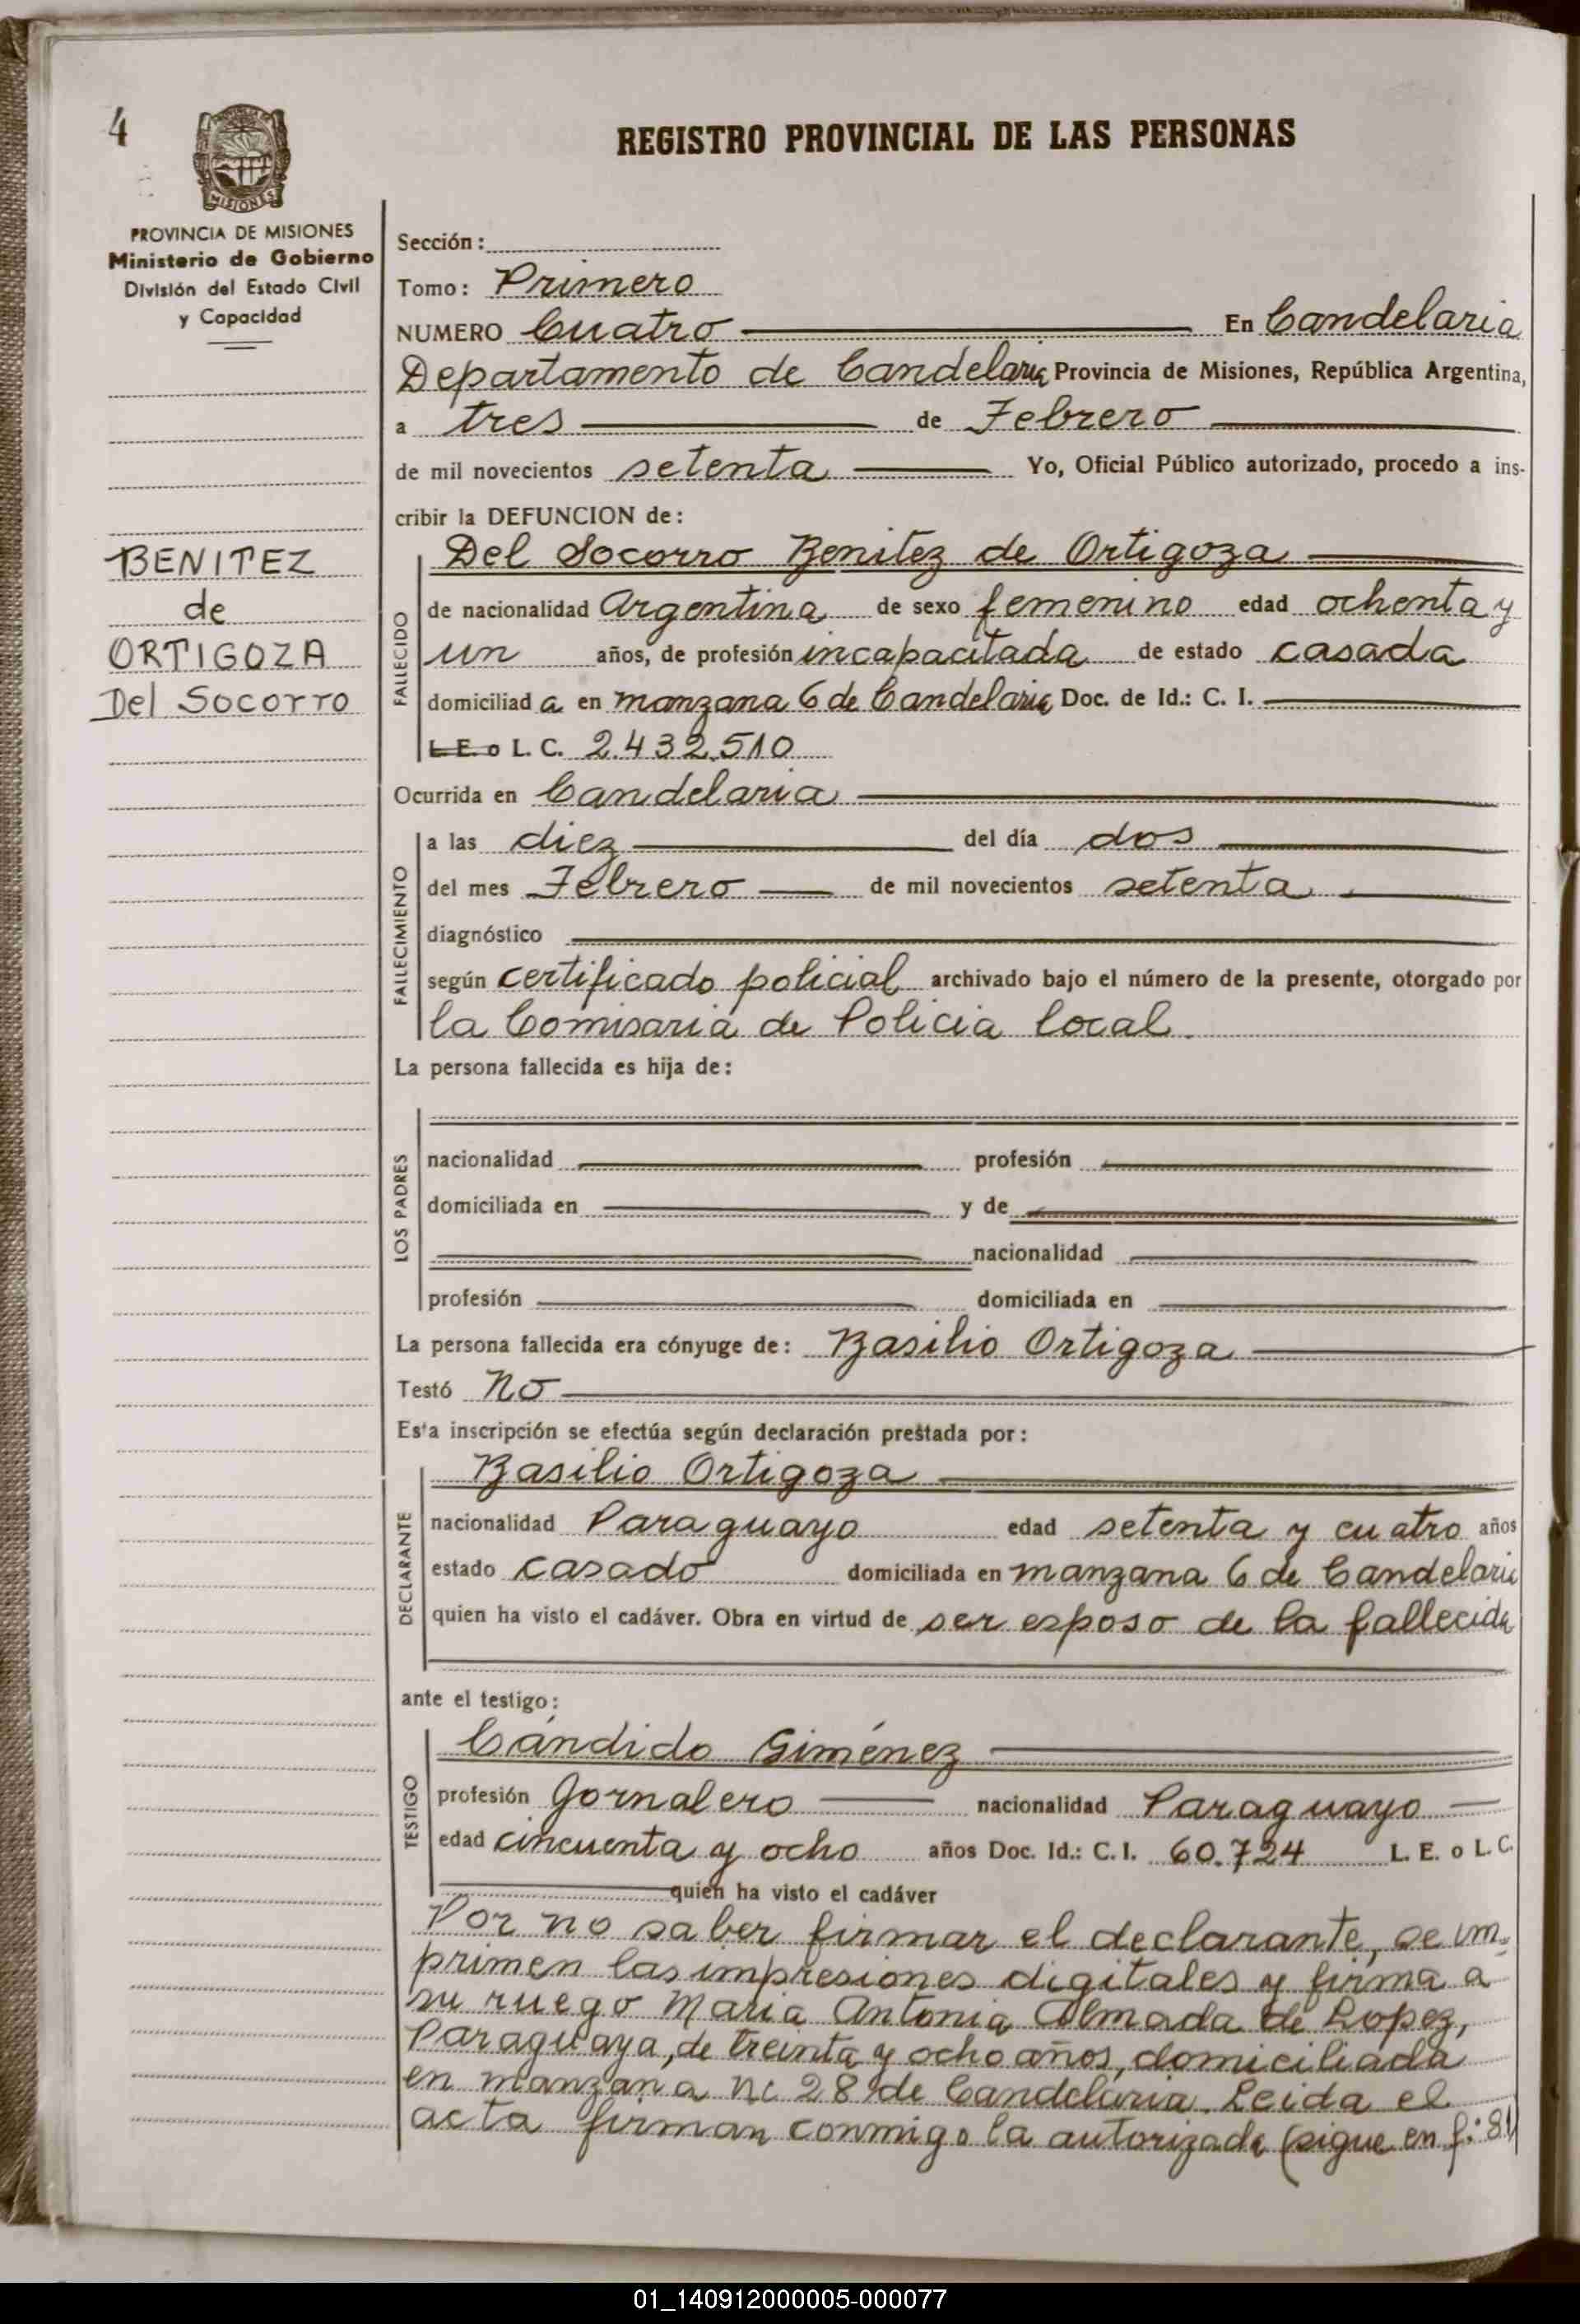 4
MISIONES
REGISTRO PROVINCIAL DE LAS PERSONAS
PROVINCIA DE MISIONES
Ministerio de Gobierno
División del Estado Civil
y Capacidad
BENITEZ
de
ORTIGOZA
Del Socorro
Sección:
Tomo: Primero
NUMERO Cuatro En Candelaria
Departamento de Candelaria Provincia de Misiones, República Argentina,
a tres de Febrero
de mil novecientos setenta Yo, Oficial Público autorizado, procedo a ins-
cribir la DEFUNCION de:
FALLECIDO
Del Socorro Benitez de Ortigoza
de nacionalidad Argentina de sexo femenino edad ochenta y
un años, de profesión incapacitada de estado casada
domiciliad a en manzana 6 de Candelaria Doc. de Id.: C. I.
L. E. o L. C. 2.432.510
Ocurrida en Candelaria
FALLECIMIENTO
a las diez del día dos
del mes Febrero de mil novecientos setenta
diagnóstico
según certificado policial archivado bajo el número de la presente, otorgado por
la Comisaria de Policia local.
La persona fallecida es hija de:
LOS PADRES
nacionalidad profesión
domiciliada en y de
nacionalidad
profesión domiciliada en
La persona fallecida era cónyuge de: Basilio Ortigoza
Testó no
Esta inscripción se efectúa según declaración prestada por:
DECLARANTE
Basilio Ortigoza
nacionalidad Paraguayo edad setenta y cuatro años
estado casado domiciliada en manzana 6 de Candelaria
quien ha visto el cadáver. Obra en virtud de ser esposo de la fallecida
ante el testigo:
TESTIGO
Cándido Giménez
profesión Jornalero nacionalidad Paraguayo
edad cincuenta y ocho años Doc. Id.: C. I. 60.724 L. E. o L. C.
quien ha visto el cadáver
Por no saber firmar el declarante, se im-
primen las impresiones digitales y firma a
su ruego Maria Antonia Almada de Lopez,
Paraguaya, de treinta y ocho años, domiciliada
en manzana nc 28 de Candelaria. Leida el
acta firman conmigo la autorizada (sigue en f: 81
01_140912000005-000077